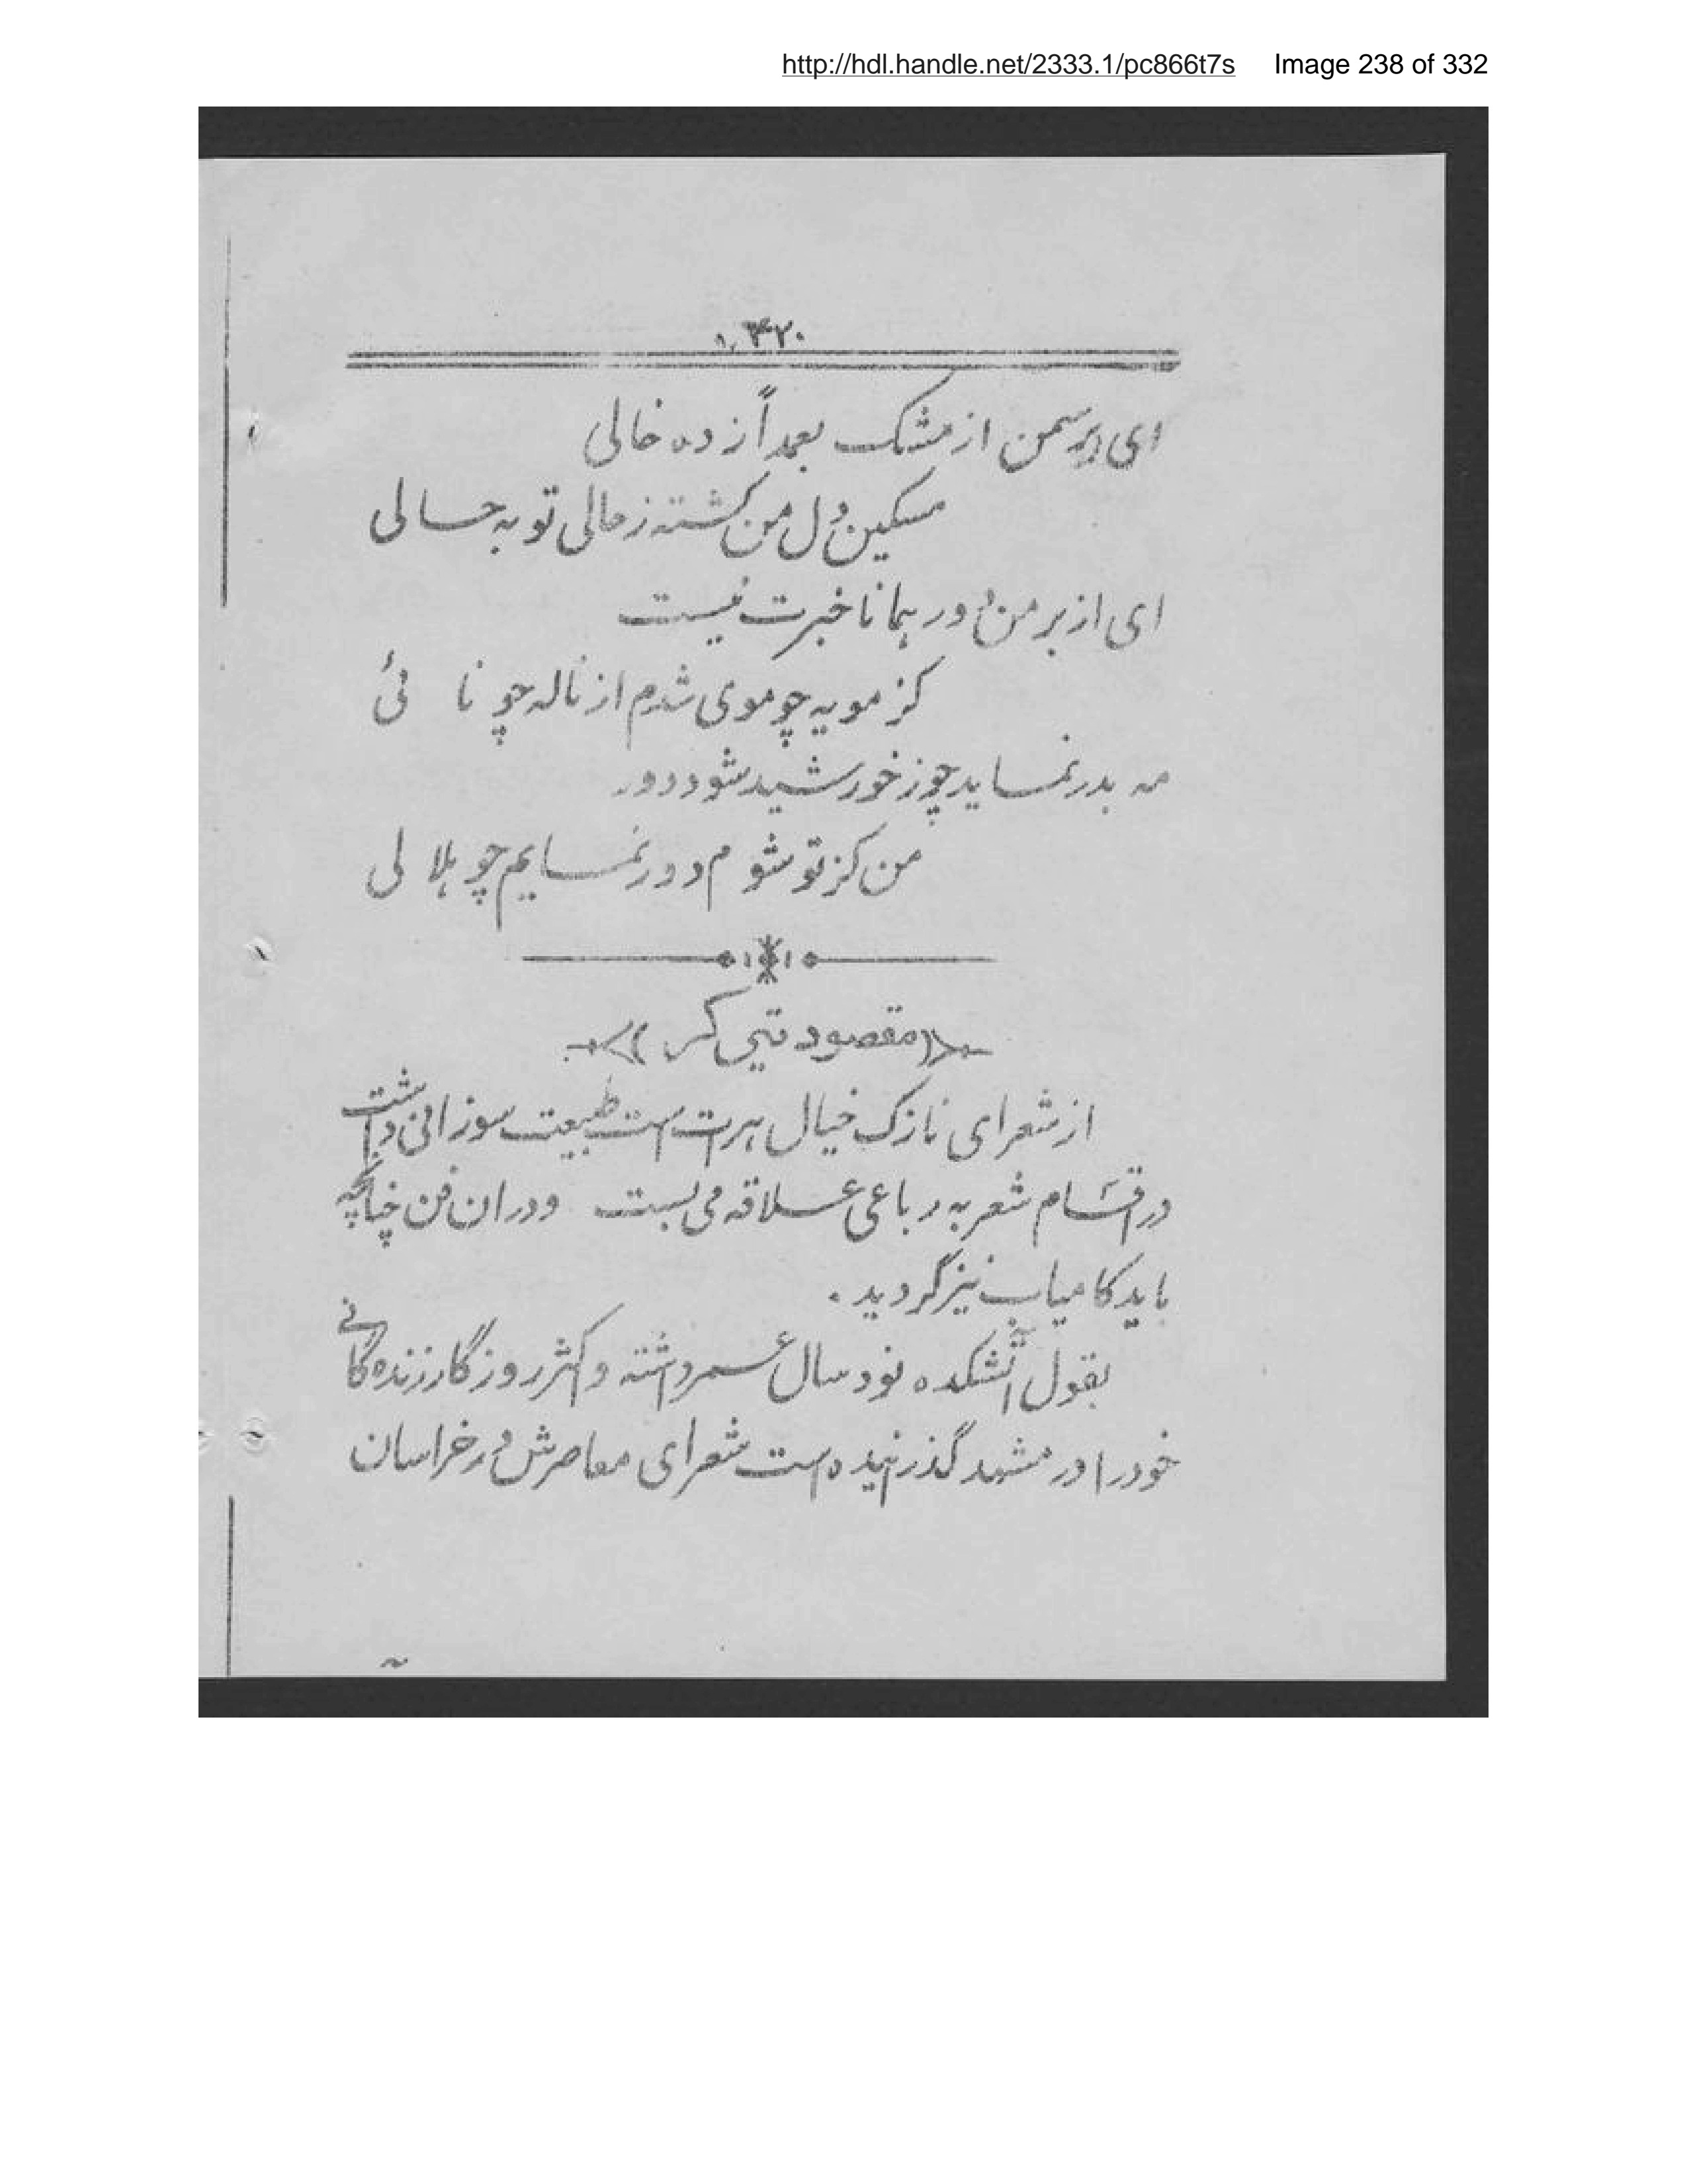 http://hdl.handle.net/2333.1/pc866t7s Image 238 of 332
۳۲۰
ای برسمن از مشک بعمداً زده خالی
مسکین دل من گشته ز حالی تو به حالی
ای از بر من دور همانا خبرت نیست
کز مویه چو موی شدم از ناله چو نائی
مه بدر نماید چو ز خورشید شود دور
من کز تو شوم دور نمایم چو هلالی
(مقصود تیر گر)
از شعرای نازک خیال هرات است طبیعت سوزانی داشت
در اقسام شعر به رباعی علاقه می بست ودران فن چنانچه
باید کامیاب نیز گردید .
بقول آتشکده نود سال عمر داشته و اکثر روزگار زنده گانی
خود را در مشهد گذرانیده است شعرای معاصرش در خراسان